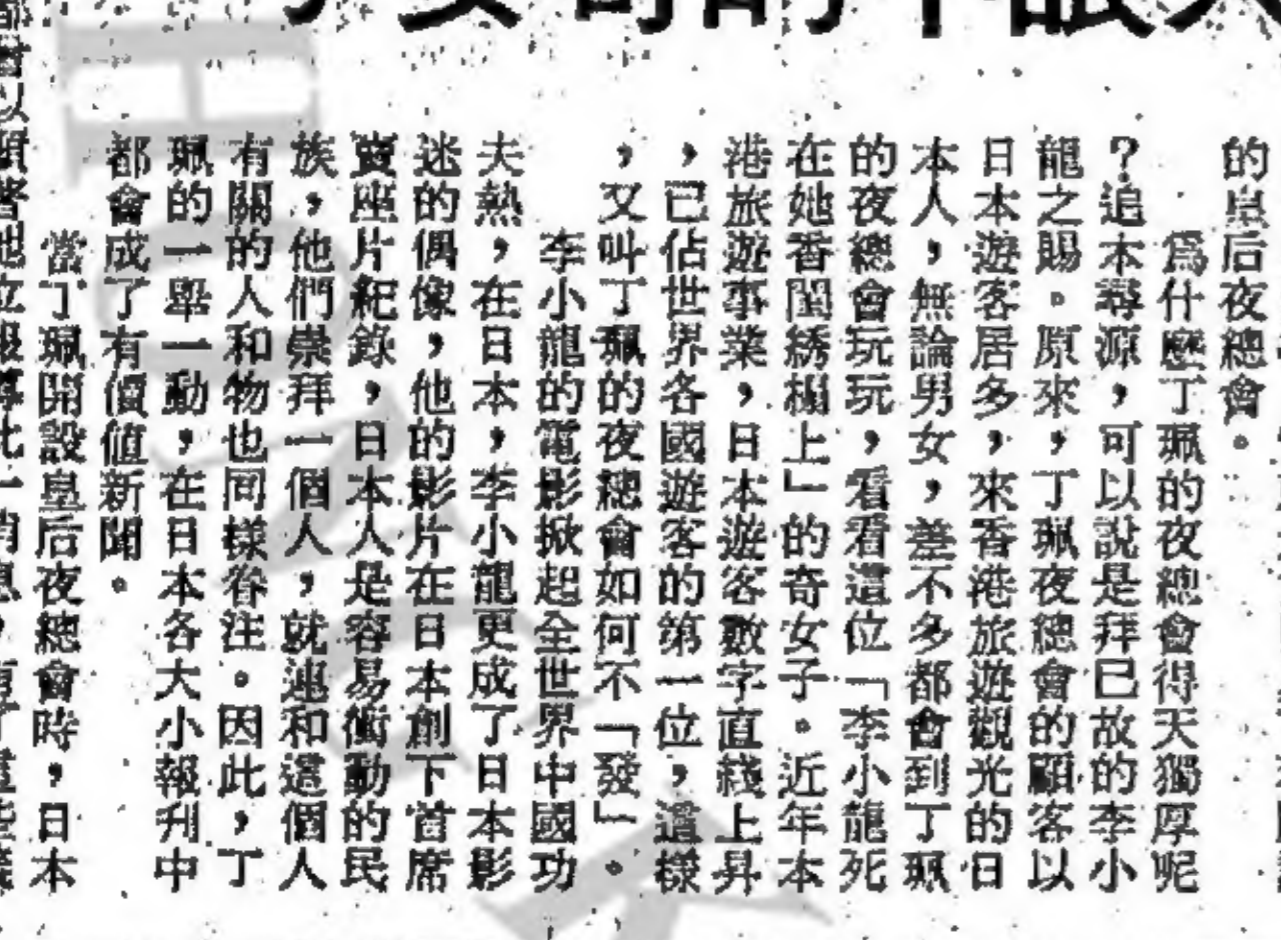 的皇后夜總會。
爲什麼丁珮的夜總會得天獨厚呢
？追本尋源，可以說是拜已故的李小
龍之賜。原來，丁珮夜總會的顧客以
日本遊客居多，來香港旅遊觀光的日
本人，無論男女，差不多都會到丁珮
的夜總會玩玩，看看這位「李小龍死
在她香閨綉榻上」的奇女子。近年本
港旅遊事業，日本遊客數字直綫上昇
，已佔世界各國遊客的第一位，這樣
，又叫丁珮的夜總會如何不「發」。
李小龍的電影掀起全世界中國功
夫熱，在日本，李小龍更成了日本影
迷的偶像，他的影片在日本創下首席
賣座片紀錄，日本人是容易衝動的民
族，他們崇拜一個人，就連和這個人
有關的人和物也同樣眷注。因此，丁
珮的一舉一動，在日本各大小報刋中
都會成了有價值新聞。
當丁珮開設皇后夜總會時，日本